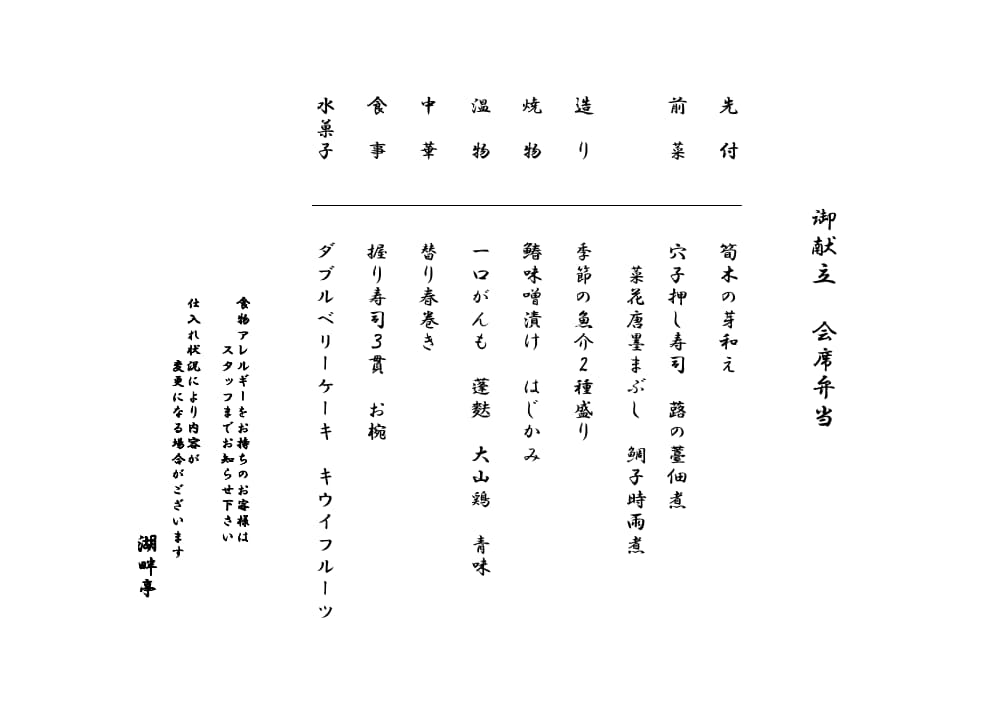 御献立　会席弁当
先付　筍木の芽和え
前菜　穴子押し寿司　蕗の薹佃煮
菜花唐墨まぶし　鯛子時雨煮
造り　季節の魚介2種盛り
焼物　鰆味噌漬け　はじかみ
温物　一口がんも　蓬麩　大山鶏　青味
中華　替り春巻き
食事　握り寿司3貫　お椀
水菓子　ダブルベリーケーキ　キウイフルーツ
食物アレルギーをお持ちのお客様は
スタッフまでお知らせ下さい
仕入れ状況により内容が
変更になる場合がございます
湖畔亭